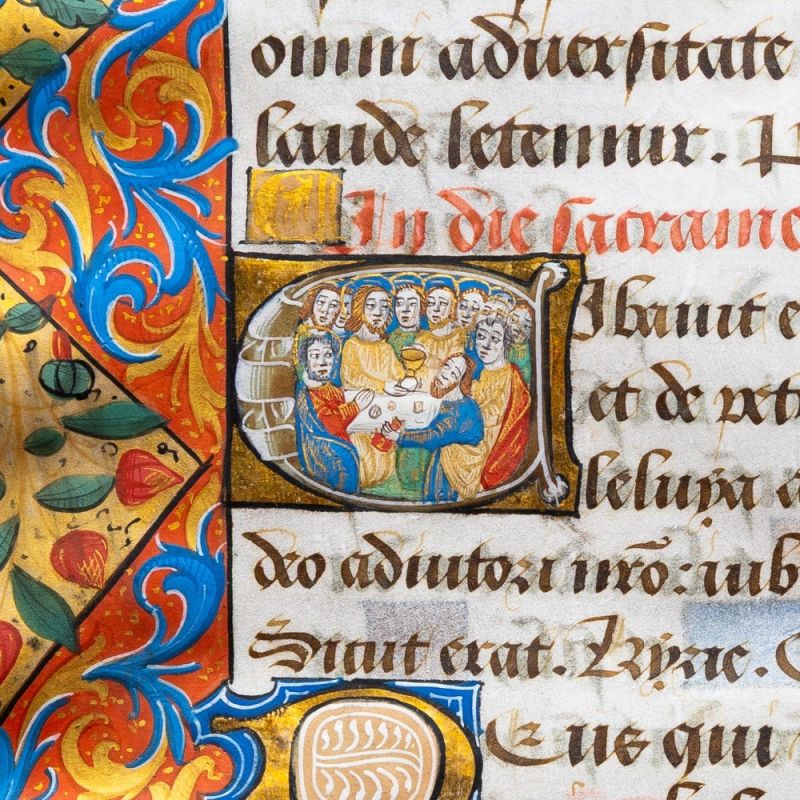 omni aduersitate
laude letemur. P
In die sacrame
Cibauit e
et de petr
leluya a
deo adiutori nrõ: iub
Sicut erat. Kyrie.
Deus qui